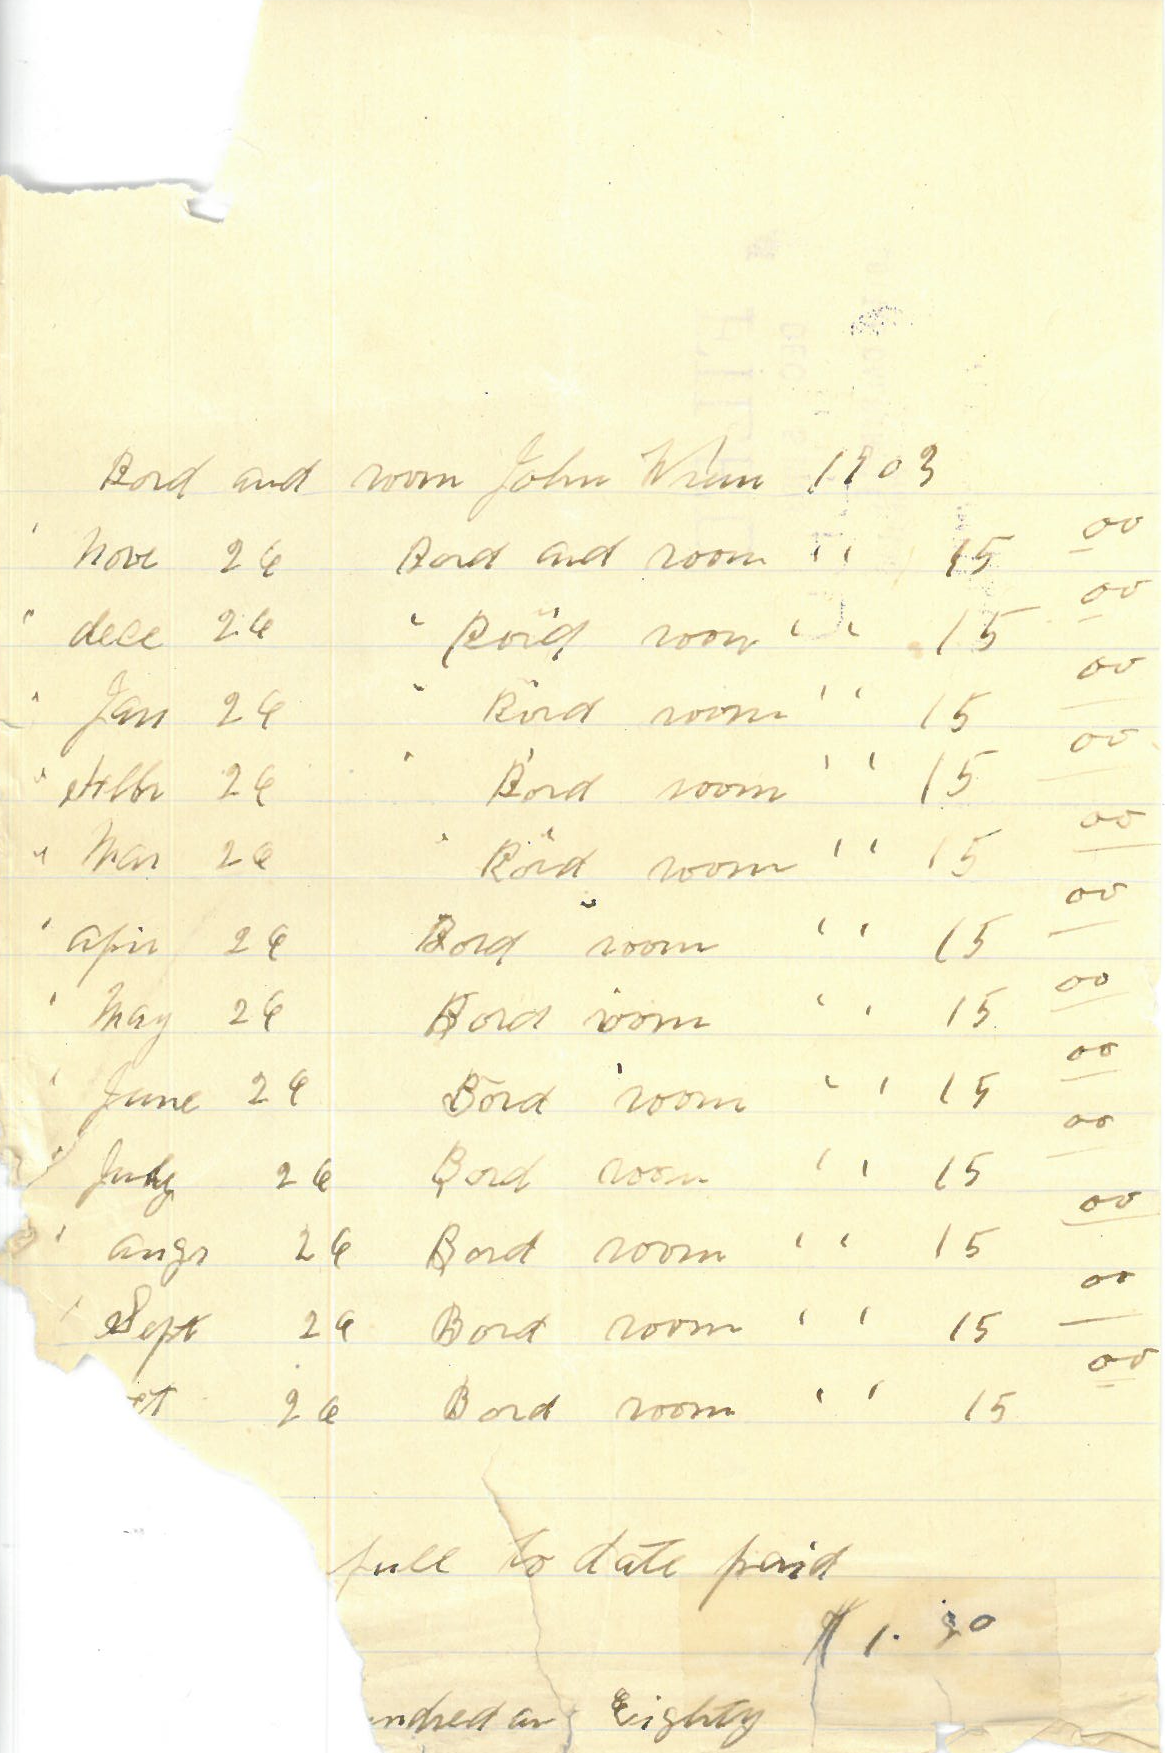 Bord and room John 1903
" Nove 26 Bord and room " " 15 00
" dece 26 " Bord room " " 15 00
" Jan 26 " Bord room " " 15 00
" 26 " Bord room " " 15 00
" Mar 26 " Bord room " " 15 00
" apir 26 Bord room " " 15 00
" May 26 Bord room " " 15 00
" June 26 Bord room " " 15 00
" July 26 Bord room " " 15 00
" augs 26 Bord room " " 15 00
" Sept 26 Bord room " " 15 00
et 26 Bord room " " 15 00
full to date paid
$ 1. 0
ndred an Eighty